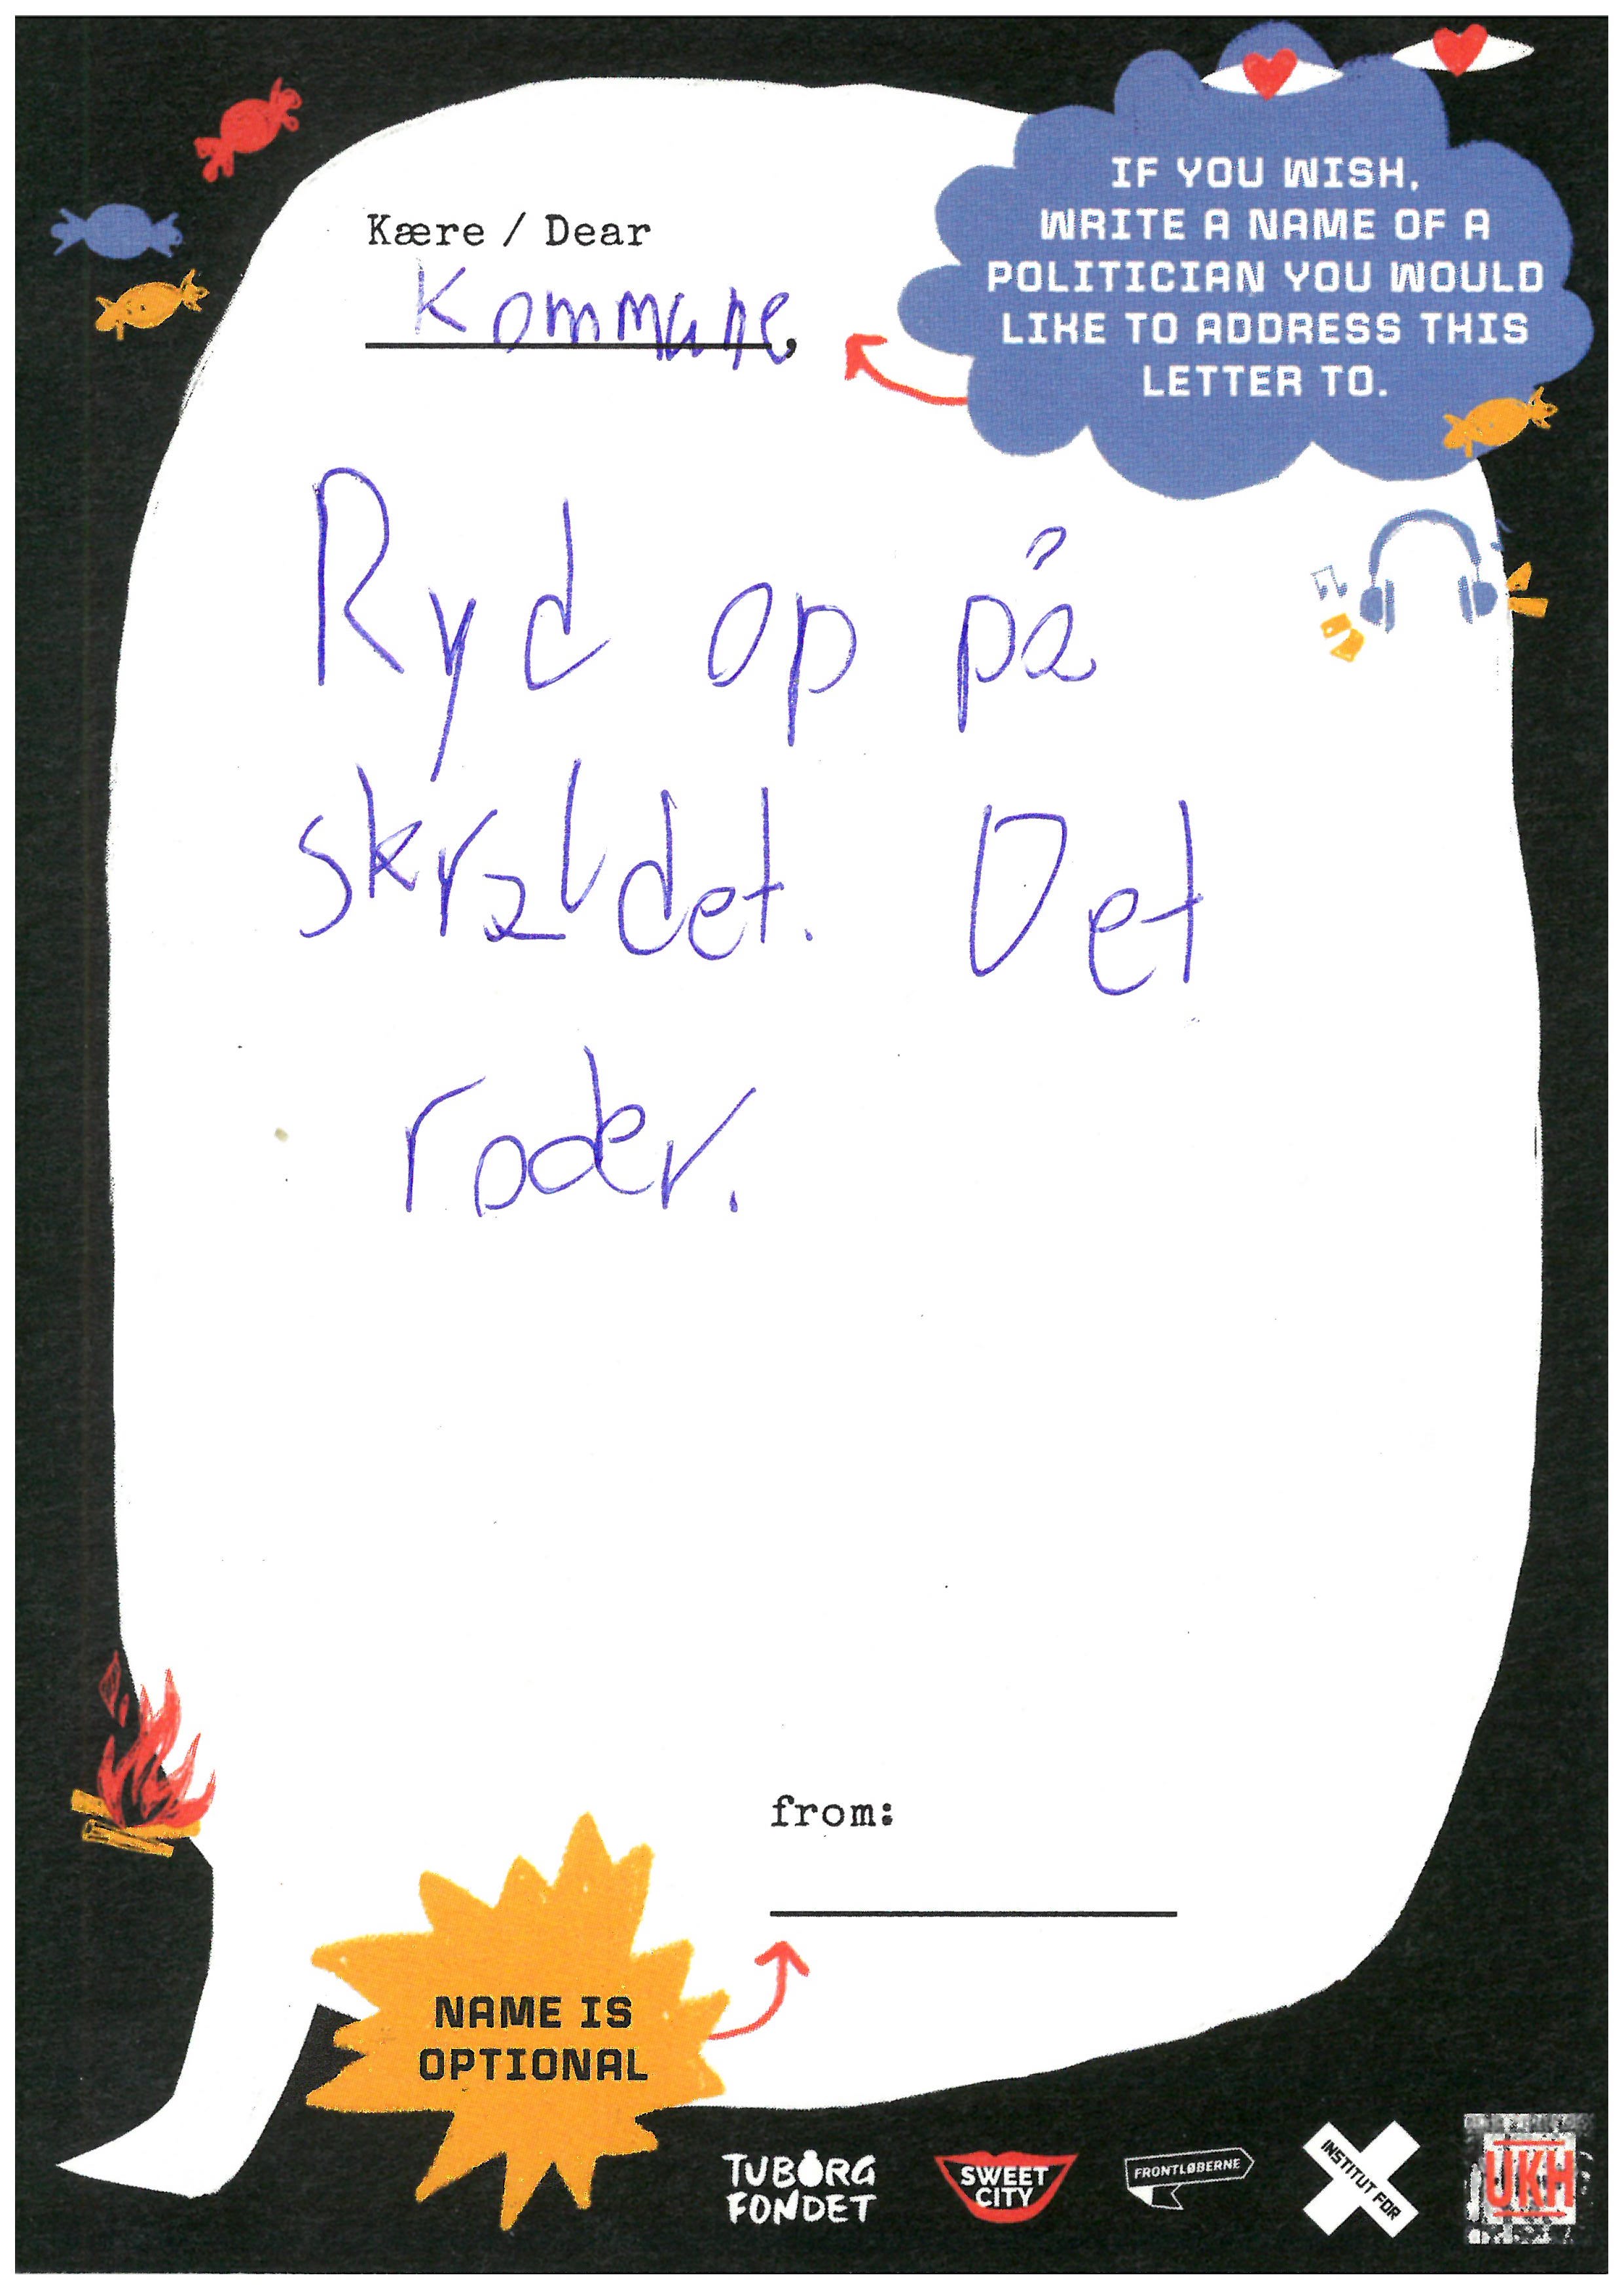 IF YOU WISH,
WRITE A NAME OF A
POLITICIAN YOU WOULD
LIKE TO ADDRESS THIS
LETTER TO.
Kære / Dear
Kommune,
Ryd op på
skraldet. Det
roder.
from:
NAME IS
OPTIONAL
TUBORG
FONDET
SWEET
CITY
FRONTLØBERNE
INSTITUT FOR
UKH